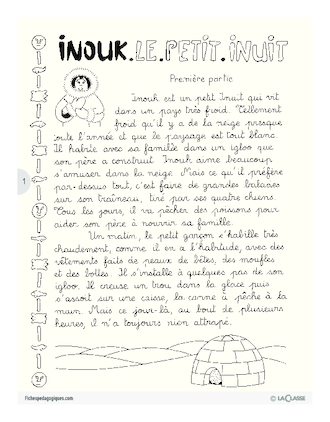 INOUK.LE.PETIT.INUIT
Première partie
Inouk est un petit Inuit qui vit
dans un pays très froid. Tellement
froid qu'il y a de la neige presque
toute l'année et que le paysage est tout blanc.
Il habite avec sa famille dans un igloo que
son père a construit. Inouk aime beaucoup
s'amuser dans la neige. Mais ce qu'il préfère
par-dessus tout, c'est faire de grandes balades
sur son traîneau, tiré par ses quatre chiens.
Tous les jours, il va pêcher des poissons pour
aider son père à nourrir sa famille.
Un matin, le petit garçon s'habille très
chaudement, comme il en a l'habitude, avec des
vêtements faits de peaux de bêtes, des moufles
et des bottes. Il s'installe à quelques pas de son
igloo. Il creuse un trou dans la glace puis
s'assoit sur une caisse, la canne à pêche à la
main. Mais ce jour-là, au bout de plusieurs
heures, il n'a toujours rien attrapé.
1
Fichespedagogiques.com
© LACLASSE